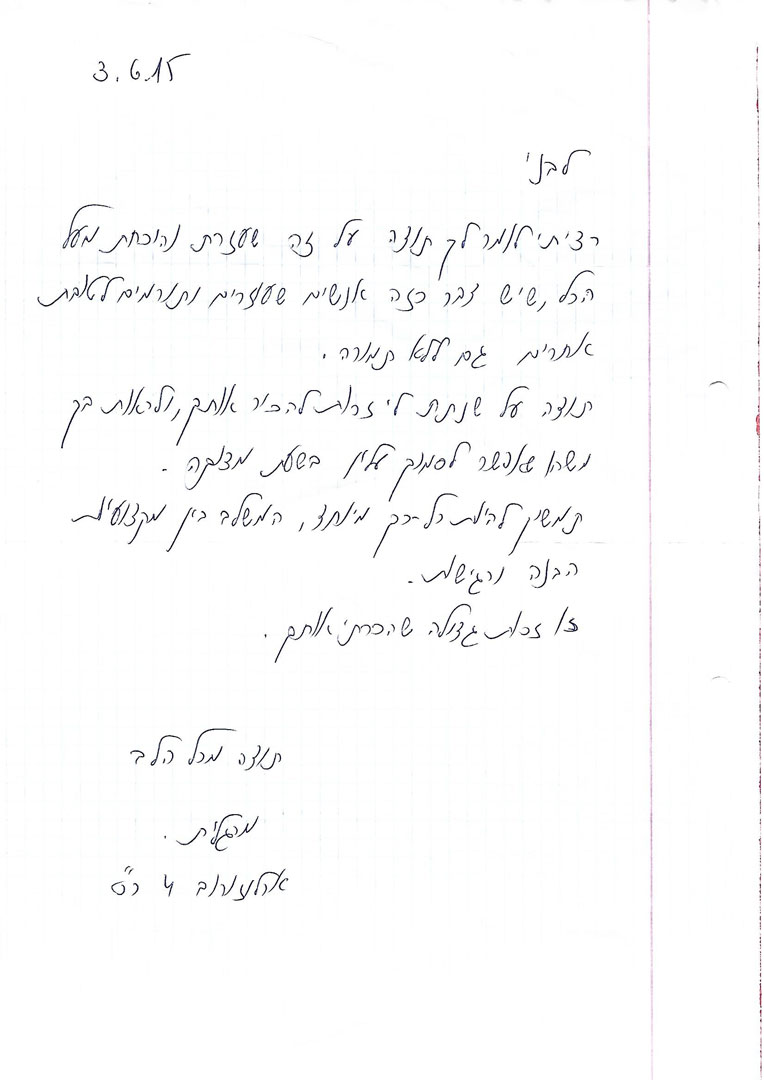 3.6.15
לבני
רציתי לומר לך תודה על זה שעזרת והוכחת מעל
הכל, שיש דבר כזה אנשים שעוזרים ותורמים לטובת
אחרים גם ללא תמורה.
תודה על שנתת לי זכות להכיר אותך, ולראות בך
משהו שאפשר לסמוך עליו בשעת מצוקה.
תמשיך להיות כל-כך מיוחד, המשלב בין מקצועיות
הבנה ורגישות.
זו זכות גדולה שהכרתי אותך.
תודה מכל הלב
מרגלית.
ארלוזורוב 4 כ"ס